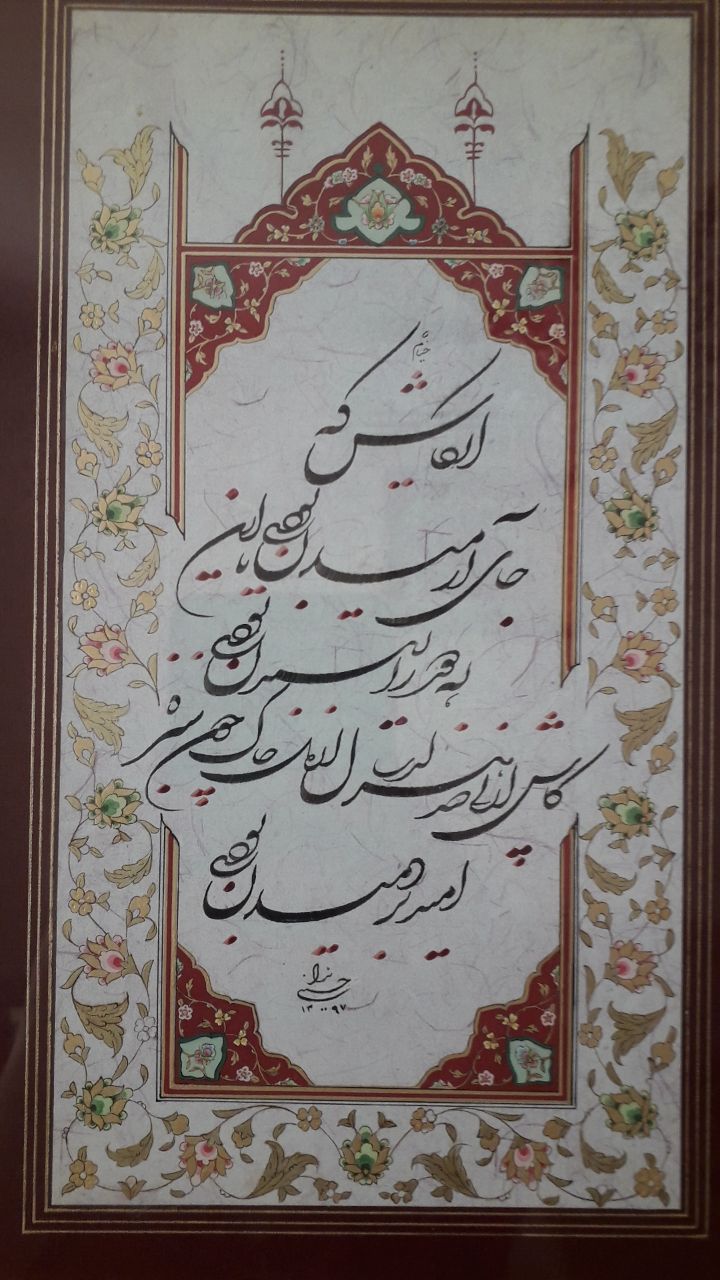 خیام
ای کاش که
جای آرمیدن بودی یا این
ره دور را رسیدن بودی
کاش از پی صد هزار سال از دل خاک چون سبزه
امید بر دمیدن بودی
۱۳۹۷